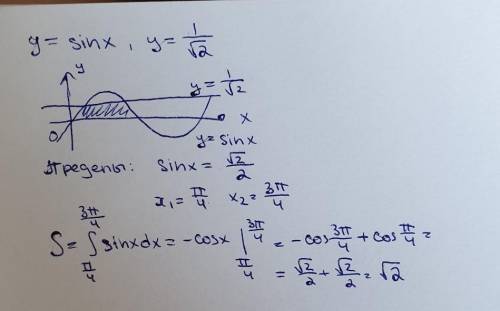 y = sinx, y = 1/√2
y
y = 1/√2
x
0
y = sinx
Пределы: sinx = √2/2
x₁ = π/4 x₂ = 3π/4
S = ∫_{π/4}^{3π/4} sinxdx = -cosx |_{π/4}^{3π/4} = -cos 3π/4 + cos π/4 =
= √2/2 + √2/2 = √2